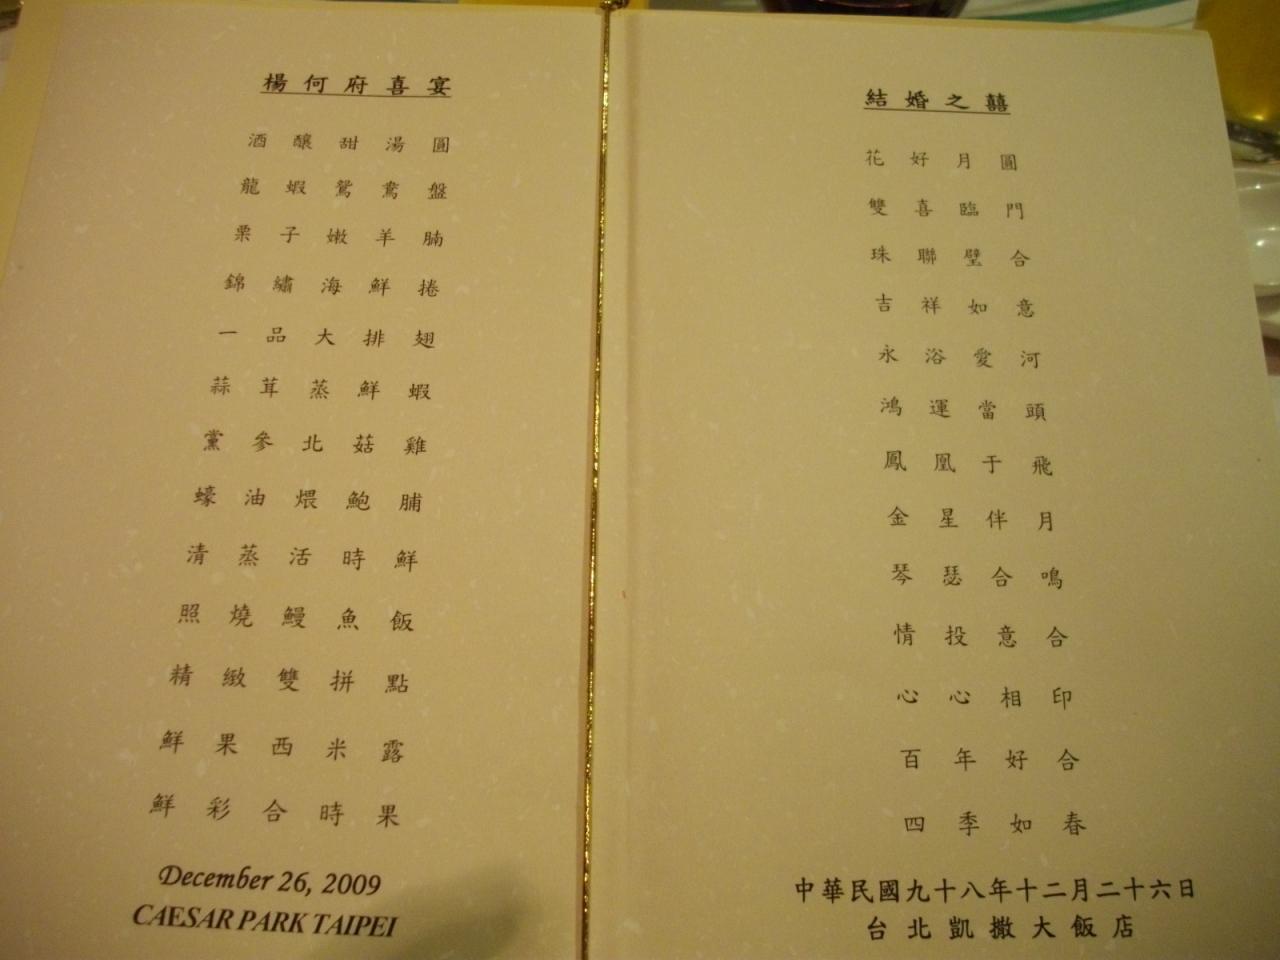 楊何府喜宴
酒釀甜湯圓
龍蝦鴛鴦盤
栗子嫩羊腩
錦繡海鮮捲
一品大排翅
蒜茸蒸鮮蝦
黨參北菇雞
蠔油煨鮑脯
清蒸活時鮮
照燒鰻魚飯
精緻雙拼點
鮮果西米露
鮮彩合時果
December 26, 2009
CAESAR PARK TAIPEI
結婚之囍
花好月圓
雙喜臨門
珠聯璧合
吉祥如意
永浴愛河
鴻運當頭
鳳凰于飛
金星伴月
琴瑟合鳴
情投意合
心心相印
百年好合
四季如春
中華民國九十八年十二月二十六日
台北凱撒大飯店